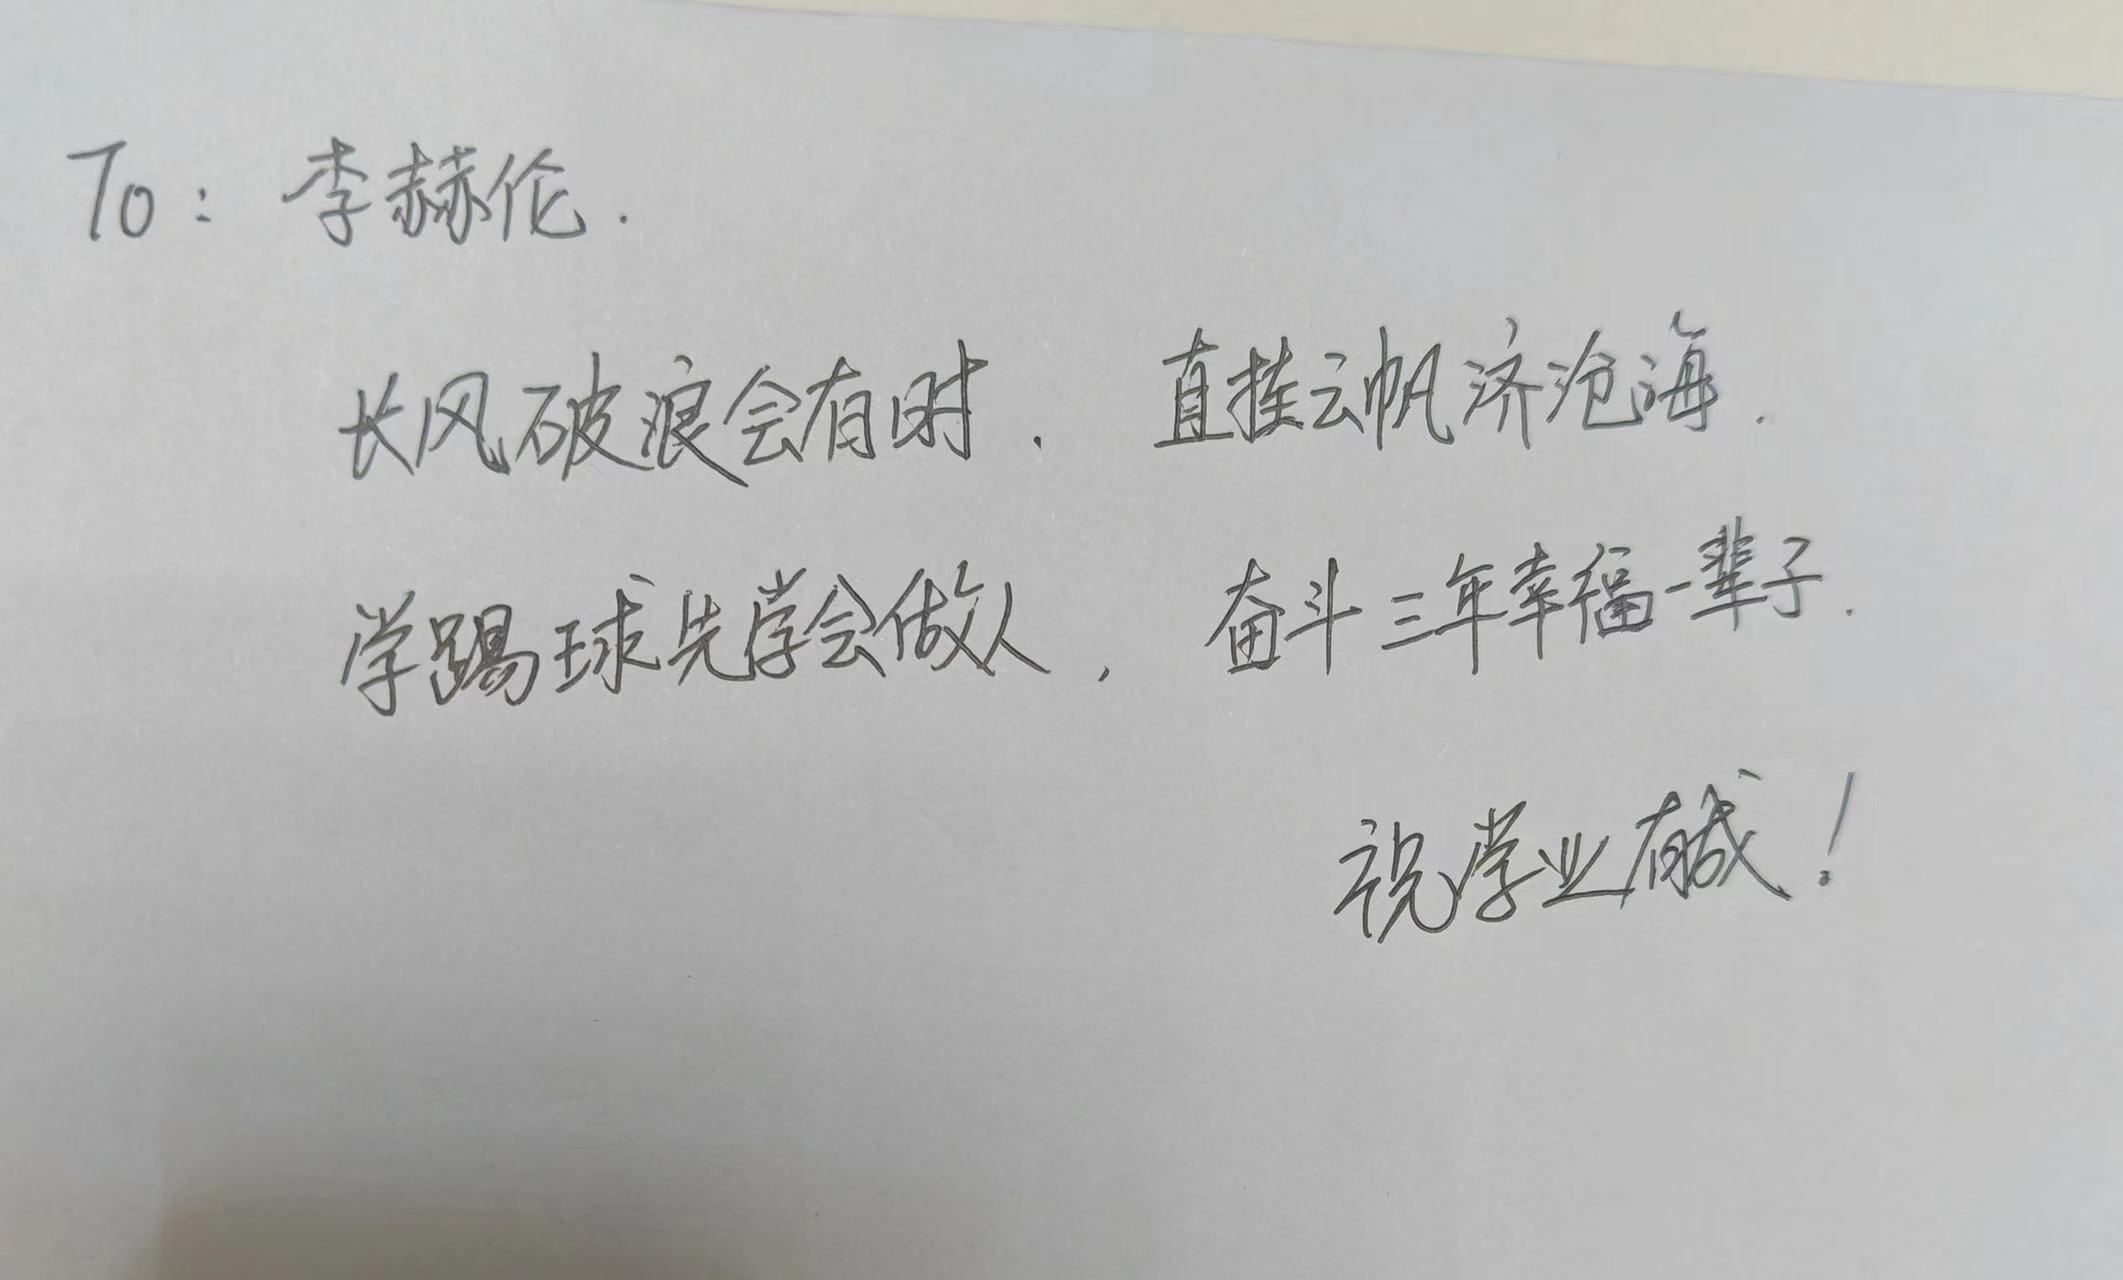 To: 李赫伦.
长风破浪会有时. 直挂云帆济沧海.
学踢球先学会做人, 奋斗三年幸福一辈子.
祝学业有成!